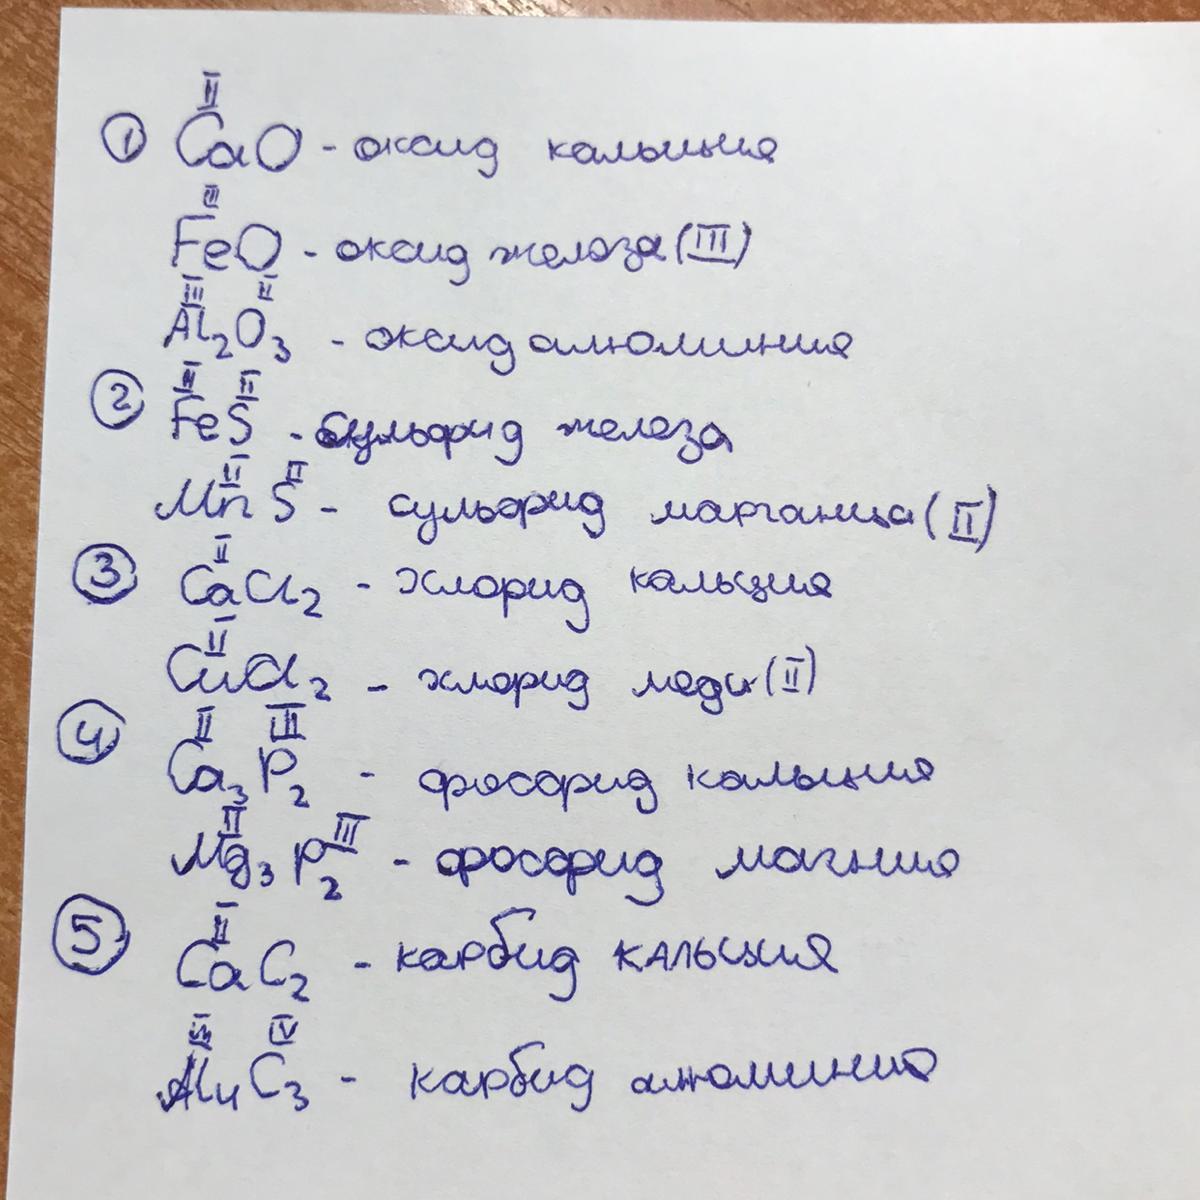 II
① CaO - оксид кальция
III
FeO - оксид железа (III)
III II
Al₂O₃ - оксид алюминия
II II
② FeS - сульфид железа
II II
MnS - сульфид марганца (II)
II
③ CaCl₂ - хлорид кальция
II
CuCl₂ - хлорид меди (II)
II III
④ Ca₃P₂ - фосфид кальция
II III
Mg₃P₂ - фосфид магния
II
⑤ CaC₂ - карбид кальция
III IV
Al₄C₃ - карбид алюминия